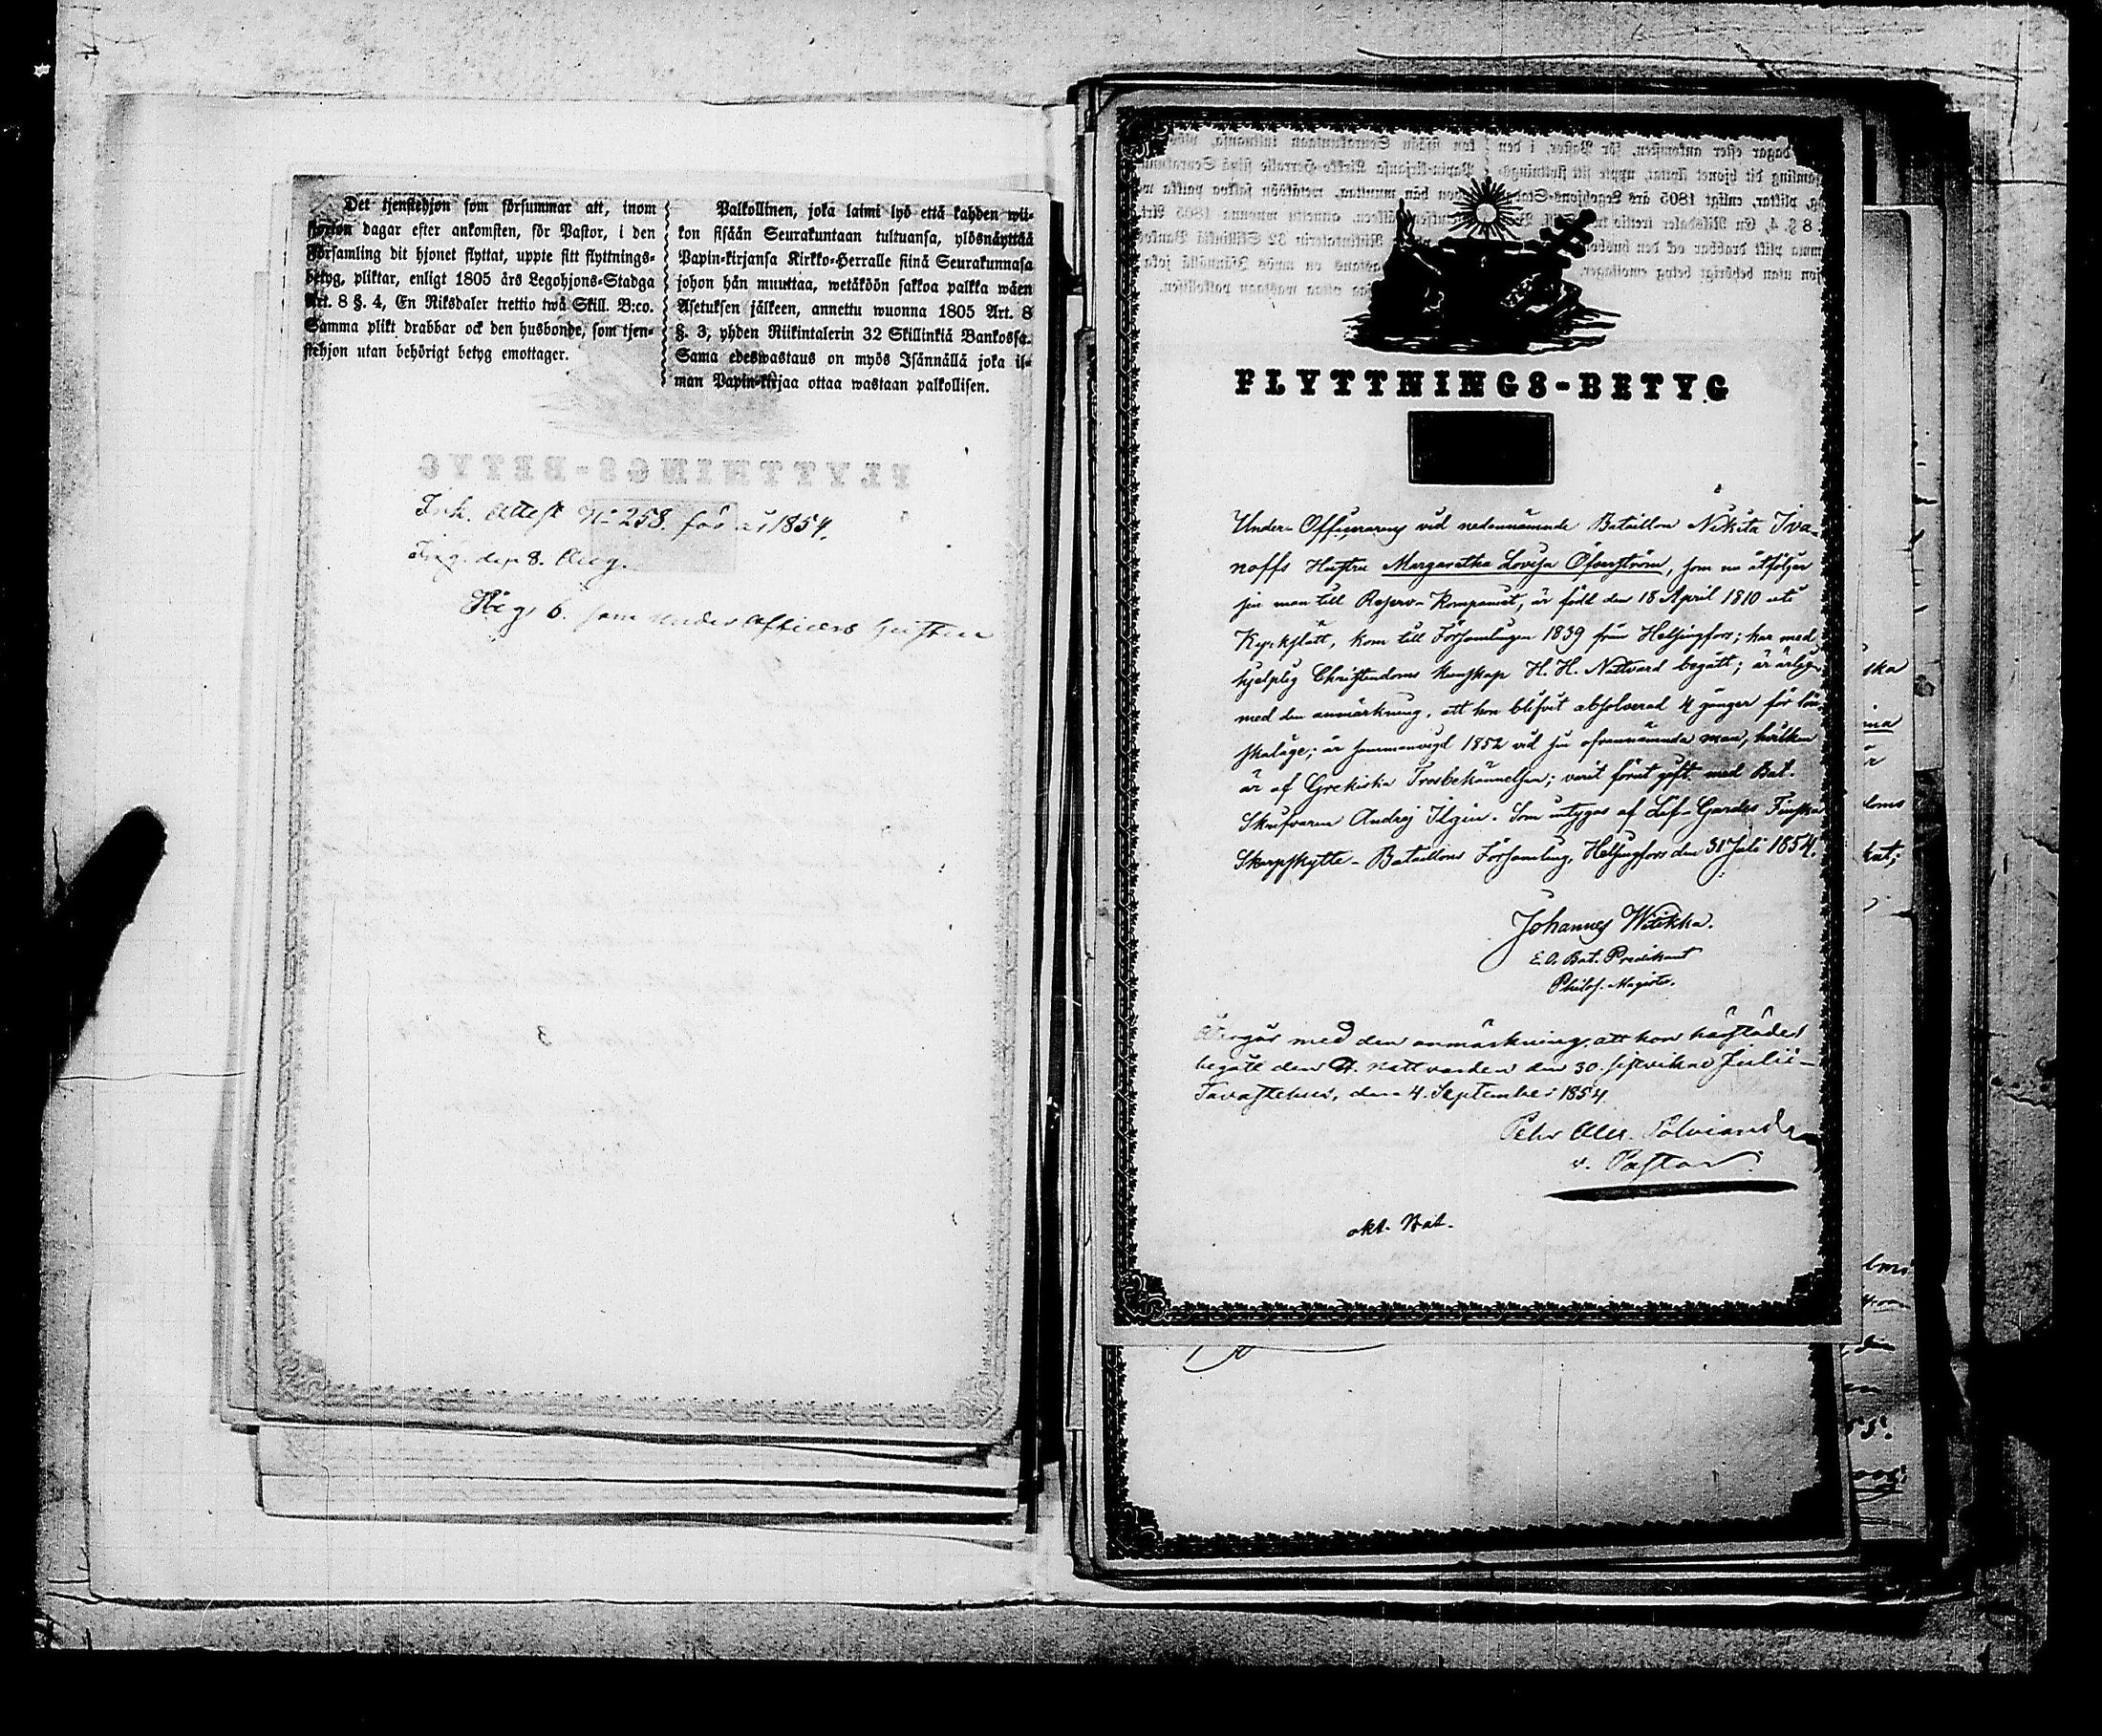 Det tjenstehjon som försummar att, inom
fjorton dagar efter ankomsten, för Pastor, i den
Församling dit hjonet flyttat, uppte sitt flyttnings-
betyg, pliktar, enligt 1805 års Legohjons-Stadga
Art. 8 §. 4, En Riksdaler trettio twå Skill. B:co.
Samma plikt drabbar ock den husbonde, som tjen-
stehjon utan behörigt betyg emottager.
Palkollinen, joka laimi lyö että kahden wii-
kon sisään Seurakuntaan tultuansa, ylösnäyttää
Papin-kirjansa Kirkko-Herralle siinä Seurakunnasa
johon hän muuttaa, wetäköön sakkoa palkka wäen
Asetuksen jälkeen, annettu wuonna 1805 Art. 8
§. 3, yhden Riikintalerin 32 Skillinkiä Bankossa.
Sama edeswastaus on myös Isännällä joka il-
man Papin-kirjaa ottaa wastaan palkollisen.
Ink. Attest No 258. för år 1854.
den 8. Aug.
6. som under Officers hustru
FLYTTNINGS-BETYG
Under-Officerarens vid nedannämnde Bataillon Nikita Iva-
noffs Hustru Margaretha Lovisa Öfverström, som nu åtföljer
sin man till Reserv-Kompaniet, är född den 18 April 1810 uti
Kyrkslätt, kom till Församlingen 1839 från Helsingfors; har med
hjelplig Christendoms kunskap H. H. Nattvard begått; är ärlig
med den anmärkning, att hon blifvit absolverad 4 gånger för lön-
skaläge; är sammanvigd 1852 vid sin ofvannämnda man, hvilken
är af Grekiska Trosbekännelsen; varit förut gift med Bat.
Skrifvaren Andrej Ilgin. Som intygas af Lif-Gardes Finska
Skarpskytte-Bataillons Församling, Helsingfors den 31 Juli 1854.
Johannes Witikka.
E. O. Bat. Predikant
Philos. Magister.
Återgår med den anmärkning, att hon härstädes
begått den H. nattvarden den 30. sistvikne Julii –
Tavastehus, den 4. September 1854
Pehr Alex.
v. Pastor.